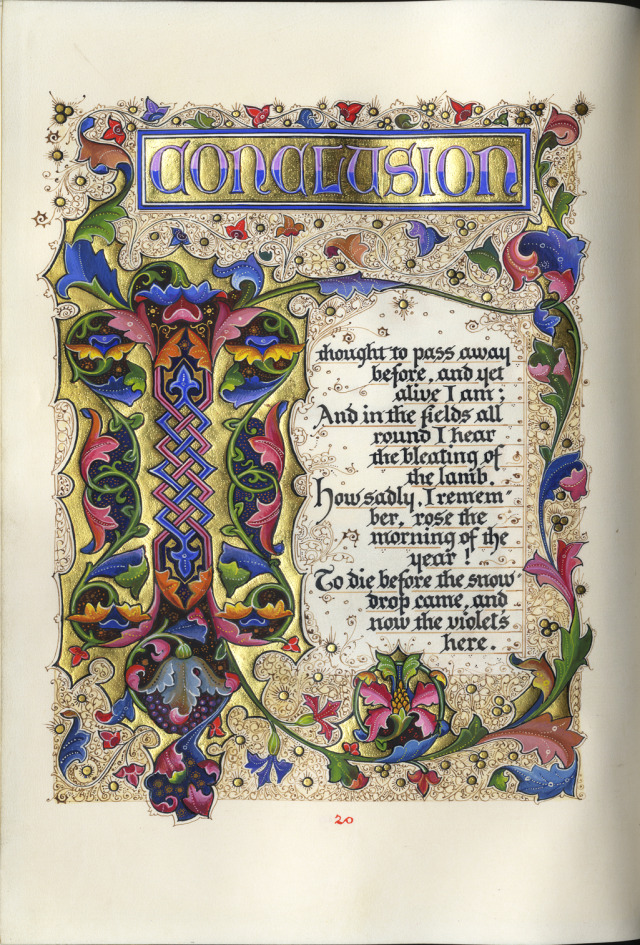 CONCLUSION
I thought to pass away
before, and yet
alive I am;
And in the fields all
round I hear
the bleating of
the lamb.
How sadly, I remem-
ber, rose the
morning of the
year!
To die before the snow-
drop came, and
now the violet's
here.
20